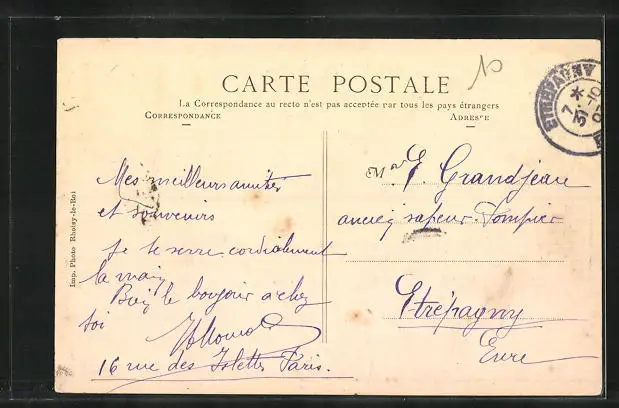 CARTE POSTALE
La Correspondance au recto n'est pas acceptée par tous les pays étrangers
CORRESPONDANCE
ADRESSE
Mes meilleurs amitiés
et souvenirs
Je te serre cordialement
la main
Bien le bonjour à chez
toi
16 rue des Islettes Paris.
Grandjean
ancien sapeur-Pompier
Etrépagny
Eure
Imp. Photo Rhoisy-le-Roi
ETREPAGNY
7 *
31-10